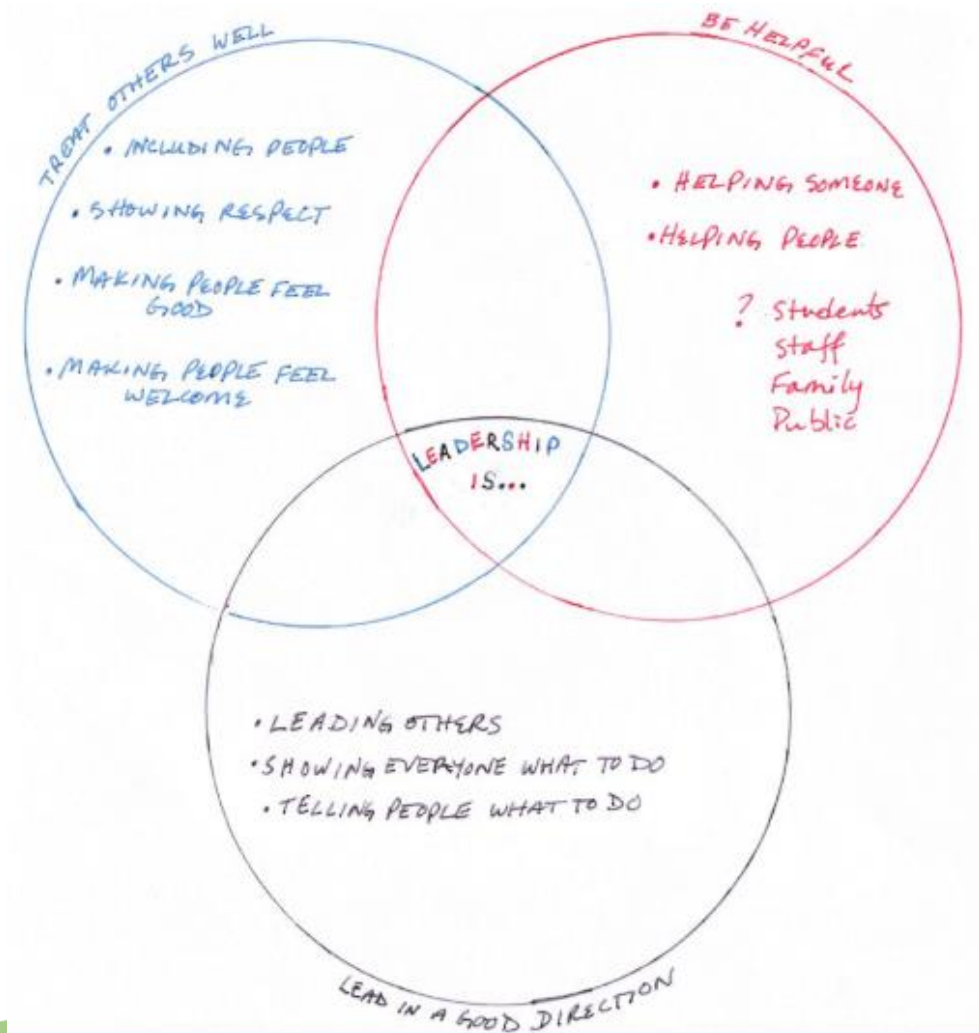 TREAT OTHERS WELL
• INCLUDING PEOPLE
• SHOWING RESPECT
• MAKING PEOPLE FEEL
GOOD
• MAKING PEOPLE FEEL
WELCOME
BE HELPFUL
• HELPING SOMEONE
• HELPING PEOPLE
? Students
Staff
Family
Public
LEADERSHIP
IS...
• LEADING OTHERS
• SHOWING EVERYONE WHAT TO DO
• TELLING PEOPLE WHAT TO DO
LEAD IN A GOOD DIRECTION